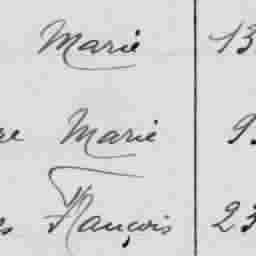 Marie 13
re Marie 9
s François 23